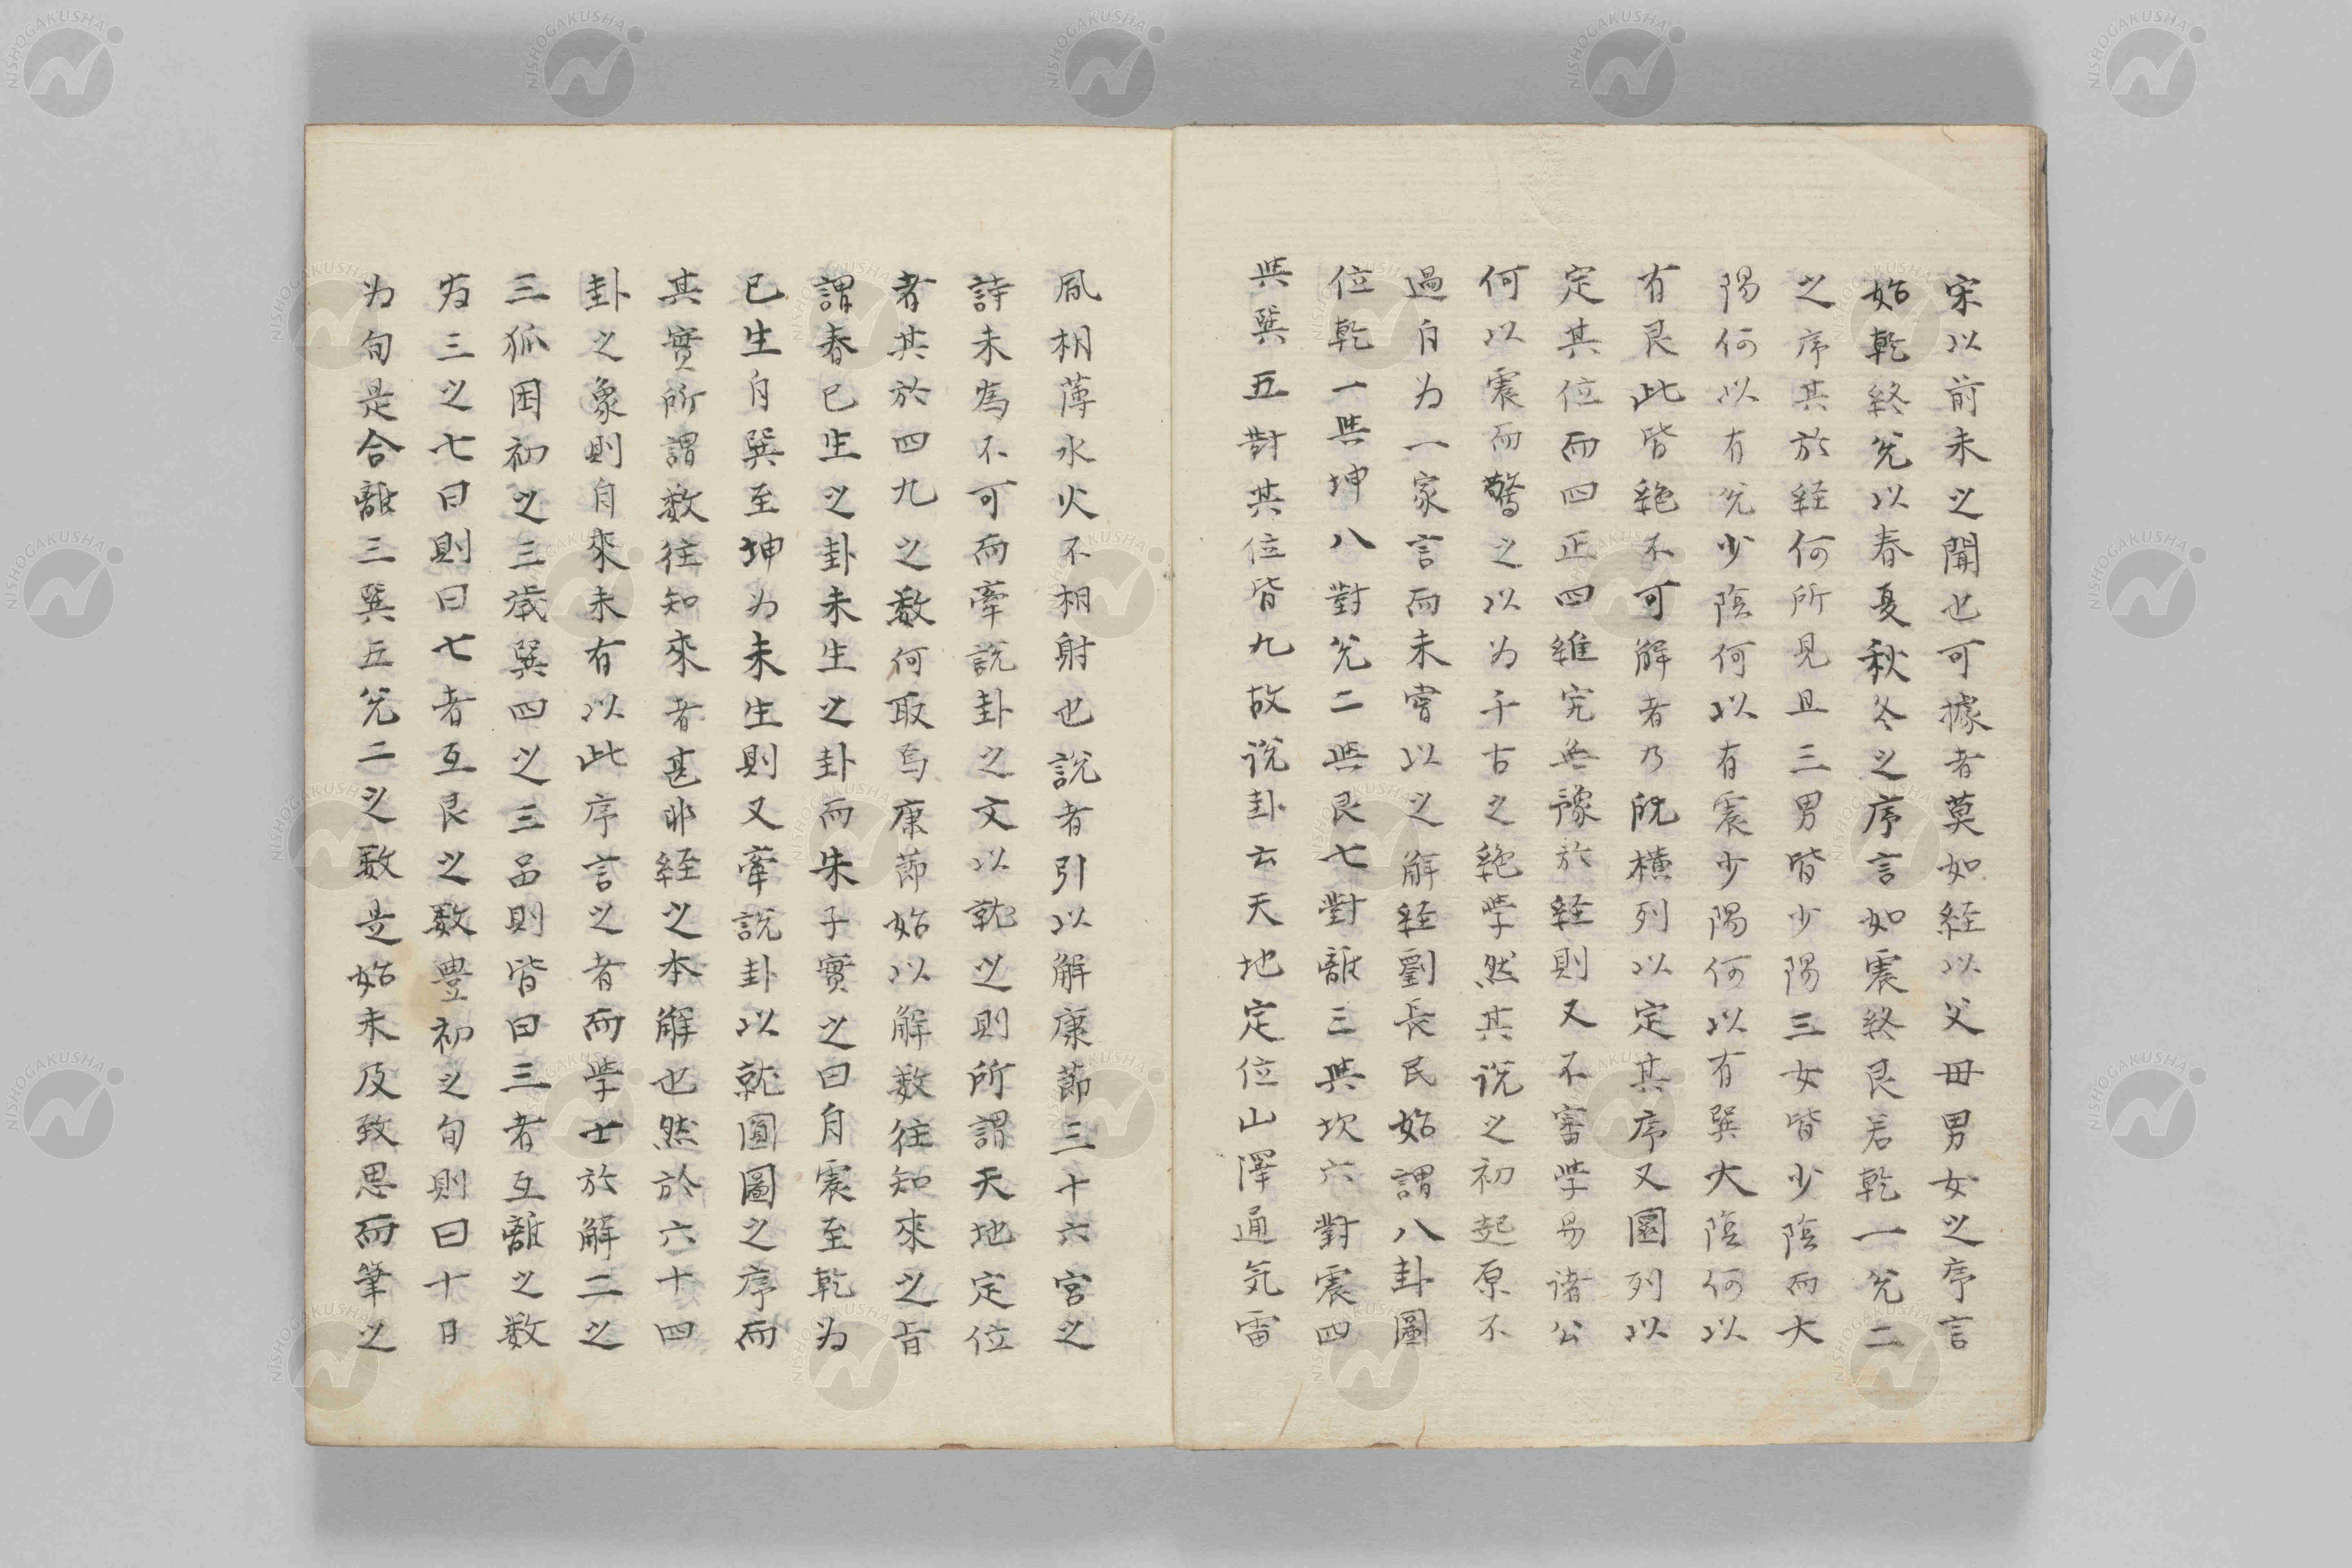 宋以前未之聞也可據者莫如経以父母男女之序言
始乾終兌以春夏秋冬之序言如震終艮若乾一兌二
之序其於経何所見且三男皆少陽三女皆少陰而大
陽何以有兌少陰何以有震少陽何以有巽大陰何以
有艮此皆絶不可解者乃既横列以定其序又圜列以
定其位而四正四維究無豫於経則又不審學易诸公
何以震而驚之以为千古之絶學然其说之初起原不
過自为一家言而未嘗以之解経劉長民始謂八卦圖
位乾一與坤八對兌二與艮七對離三與坎六對震四
與巽五對其位皆九故说卦云天地定位山澤通気雷
風相薄水火不相射也說者引以解康節三十六宮之
詩未為不可而牽説卦之文以就之則所謂天地定位
者其於四九之数何取焉康節始以解数往知來之旨
謂春已生之卦未生之卦而朱子實之曰自震至乾为
已生自巽至坤为未生則又牽説卦以就圓圖之序而
其實所謂数往知來者甚非経之本解也然於六十四
卦之象則自來未有以此序言之者而學士於解二之
三狐困初之三歳巽四之三品則皆曰三者互離之数
为三之七日則曰七者互艮之数豊初之旬則曰十日
为旬是合離三巽五兌二之数是始未及致思而筆之
NISHOGAKUSHA